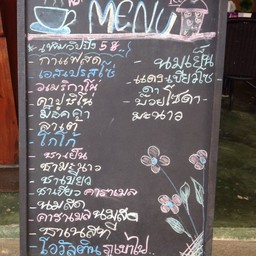 MENU
แหนมปิ้ง 5 ฿
- กาแฟสด
- เอสเปรสโซ่
- อเมริกาโน่
- คาปูชิโน่
- มอคค่า
- ลาเต้
- โกโก้
- ชาเย็น
- ชามะนาว
- ชาเขียว
- ชาเขียว คาราเมล
- นมสด
- คาราเมล นมสด
- ชาเนสที
- โอวัลติน ภูเขาไฟ
- นมเย็น
- แดง เขียว โซดา
- บ๊วยโซดา -
มะนาว